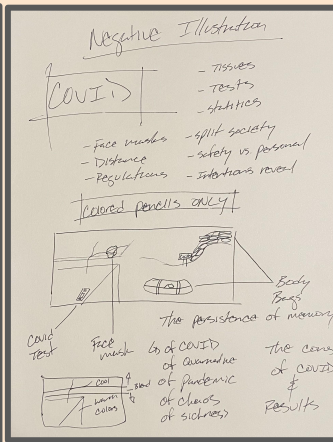 Negative Illustration
COVID
- Tissues
- Tests
- Statitics
- Face masks
- Distance
- Regulations
- split society
- Safety vs personal
- Intentions reveal
Colored pencils ONLY
Covid Test
Face mask
Body Bags
The persistence of memory
of COVID
of Quarantine
of Pandemic
of chaos
of sickness
The cone
of covid
&
Results
cool
warm colors
Blend